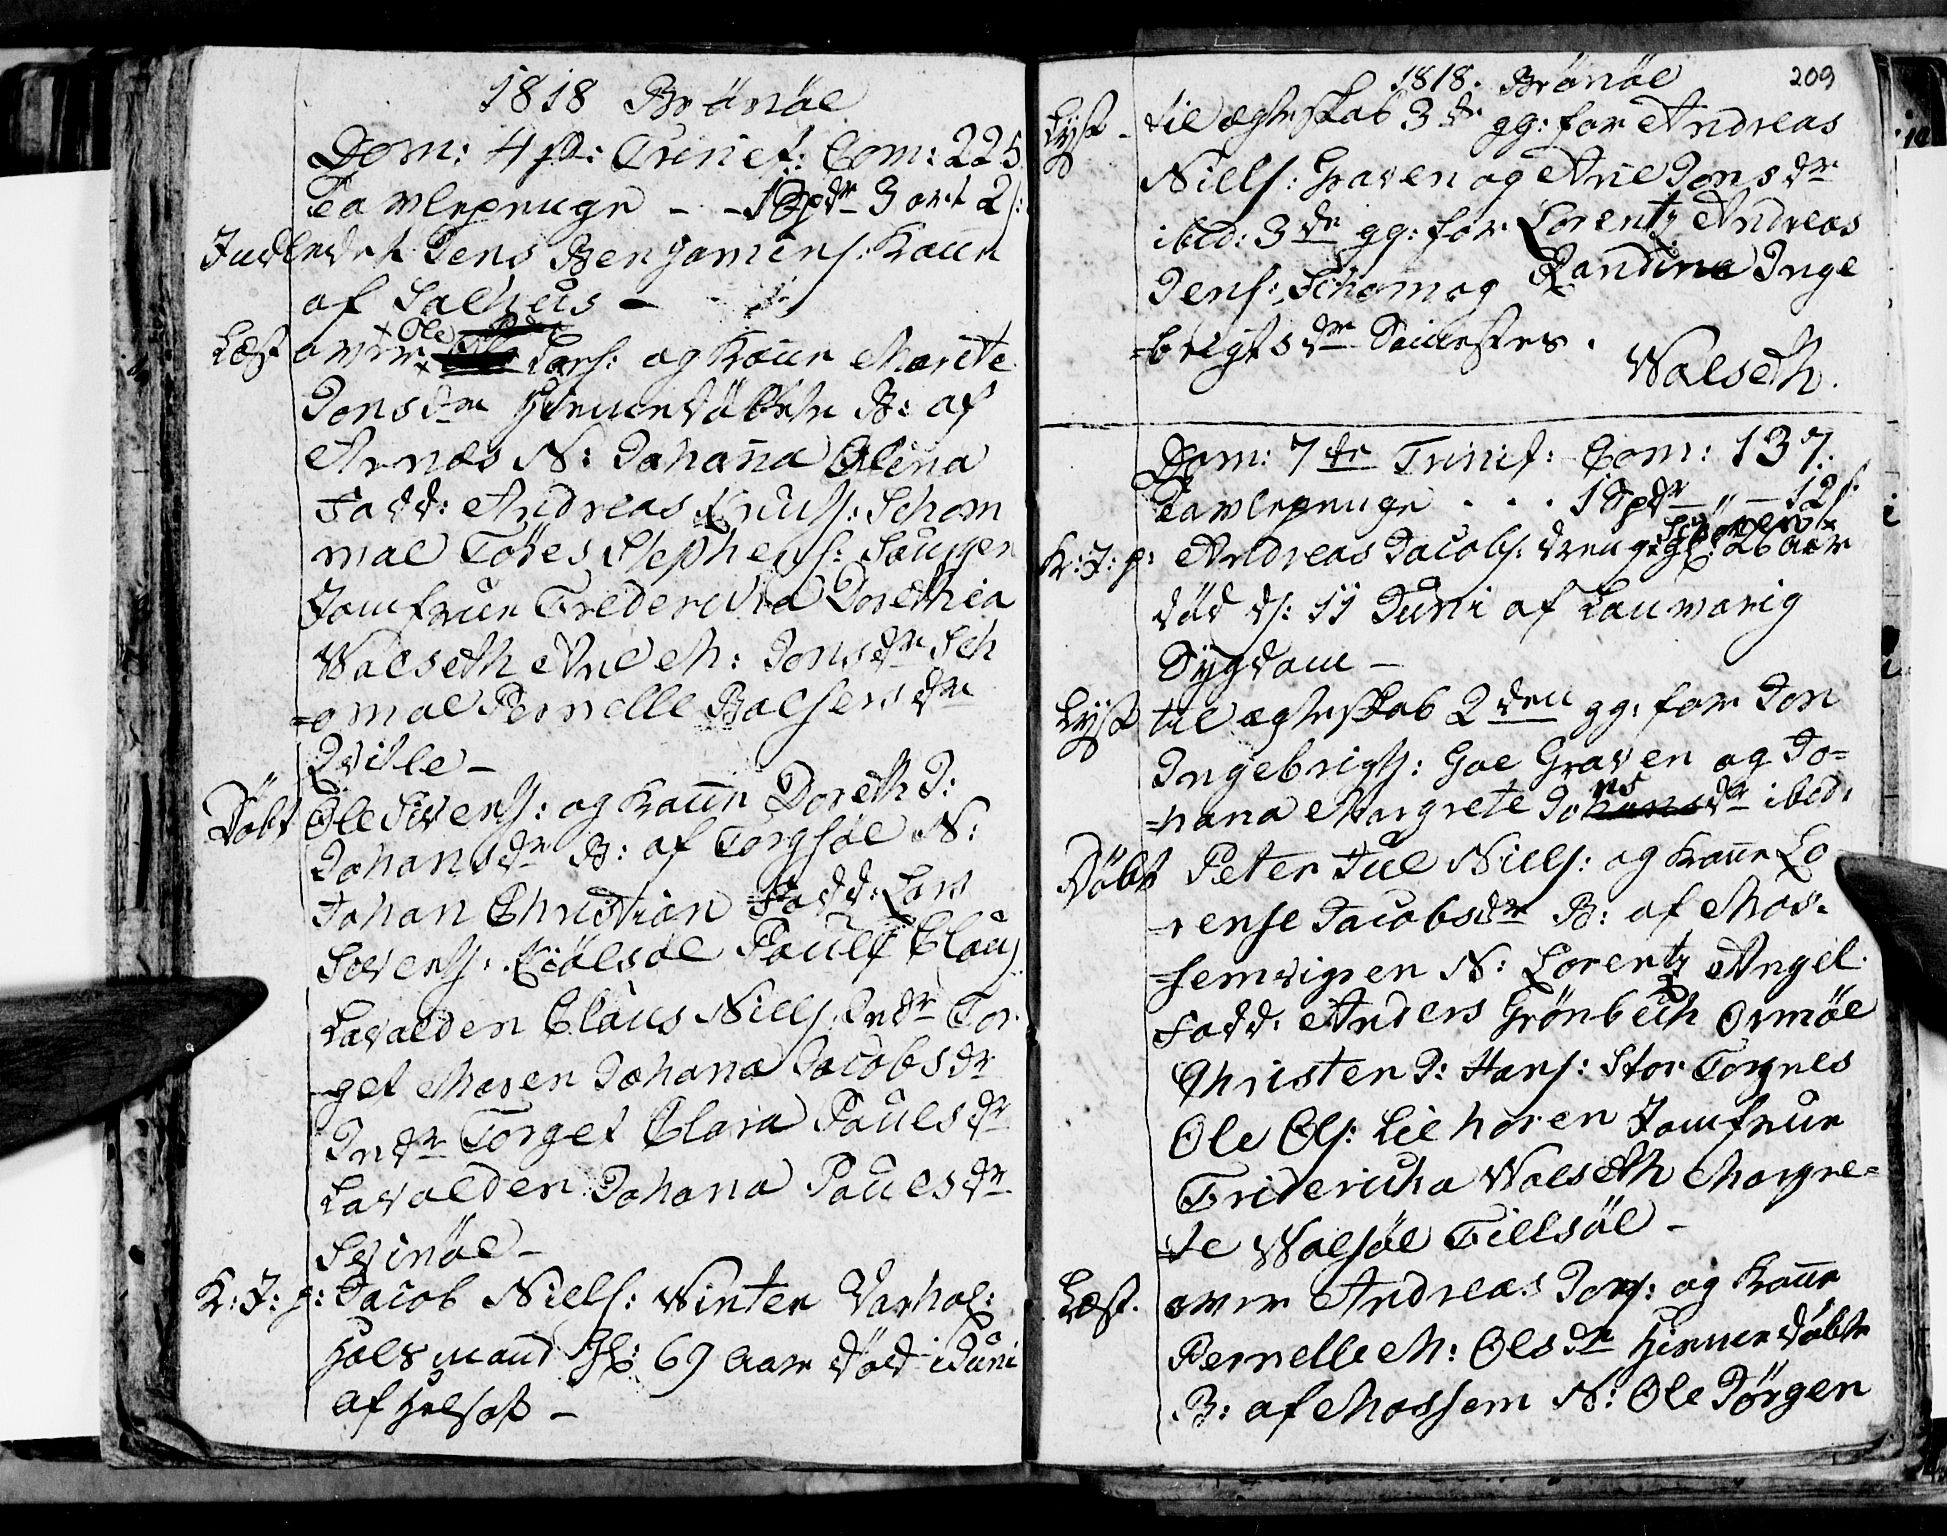 1818 Brönöe
Dom: 4 p: Trinit: Com: 225.
Tavlepenge - - 1 Spdr 3 ort 2 s:
Indledet Jens Benjamins: Kone
af Salhuus -
Læst over Ole Lars: og Kone Marite
Jonsdr hiemmedöbte B: af
Arnæs N: Johana Olina
Fadd: Andreas Knuds: Schom
moe Töres Stephens: Sausgen
Jomfrue Fredericha Dorethea
Walseth Ane M: Jonsdr Sch
=omoe Pernelle Balsersdr
Qville -
Döbt Ole Sivers: og Kone Doreth J:
Johansdr B: af Torgsöe N:
Johan Christian Fadd: Lars
Sivers: Kiölsöe Pauls Claus:
Lavolden Claus Niels: Indr Tor
get Maren Johana Jacobsdr
Indr Torget Clara Paulsdr
Lavolden Johana Paulsdr
Svinöe -
K: J: p: Jacob Niels: Winter Varhol:
Holsmand gl: 69 aar död i Juni
af

1818. Brönöe 209
Lyst - til ægteskab 3de gg: for Andreas
Niels: Graven og Ane Jonsdr
ibid: 3de gg: for Lorentz Andreas
Jens: Schom og Randina Inge
=brigtsdr
Walseth.
Dom: 7de Trinit: Com: 137.
Tavlepenge . . . 1 Spdr " - 12 s:
K: J: p: Andreas Jacobs: dreng gl: 26 aar
död d: 11 Juni af Langvarig
Sygdom -
Lyst til ægteskab 2den gg: for Jon
Ingebrigts: Goe Graven og Jo=
=hana Margrete Jonsdr ibid:
Döbt Peter Juel Niels: og Kone Lo
-rense Jacobsdr B: af Mos=
=semvigen N: Lorentz Angel
Fadd: Anders Grönbech Ormöe
Christen J: Hans: Stor Torgnes
Ole Ols: Liehoren Jomfrue
Fridericha Walseth Margre=
=te Walsöe Tillsöe -
Læst. over Andreas Jons: og Kone
Pernelle M: Olsdr hiemmedöbte
B: af Mossem N: Ole Jörgen